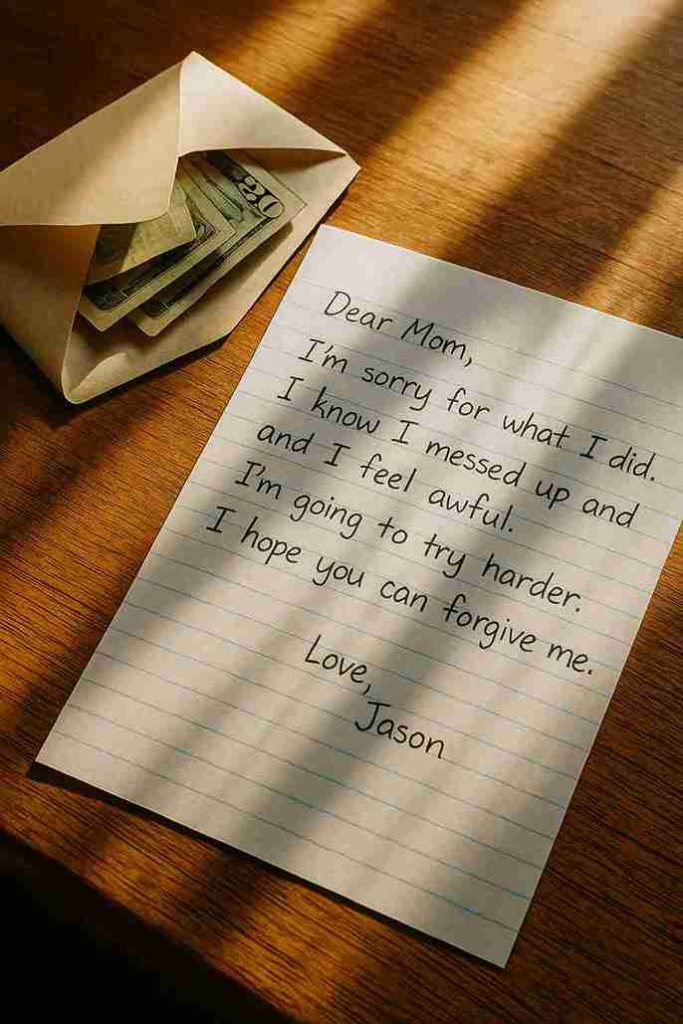 20
Dear Mom,
I'm sorry for what I did.
I know I messed up and
and I feel awful.
I'm going to try harder.
I hope you can forgive me.
Love,
Jason